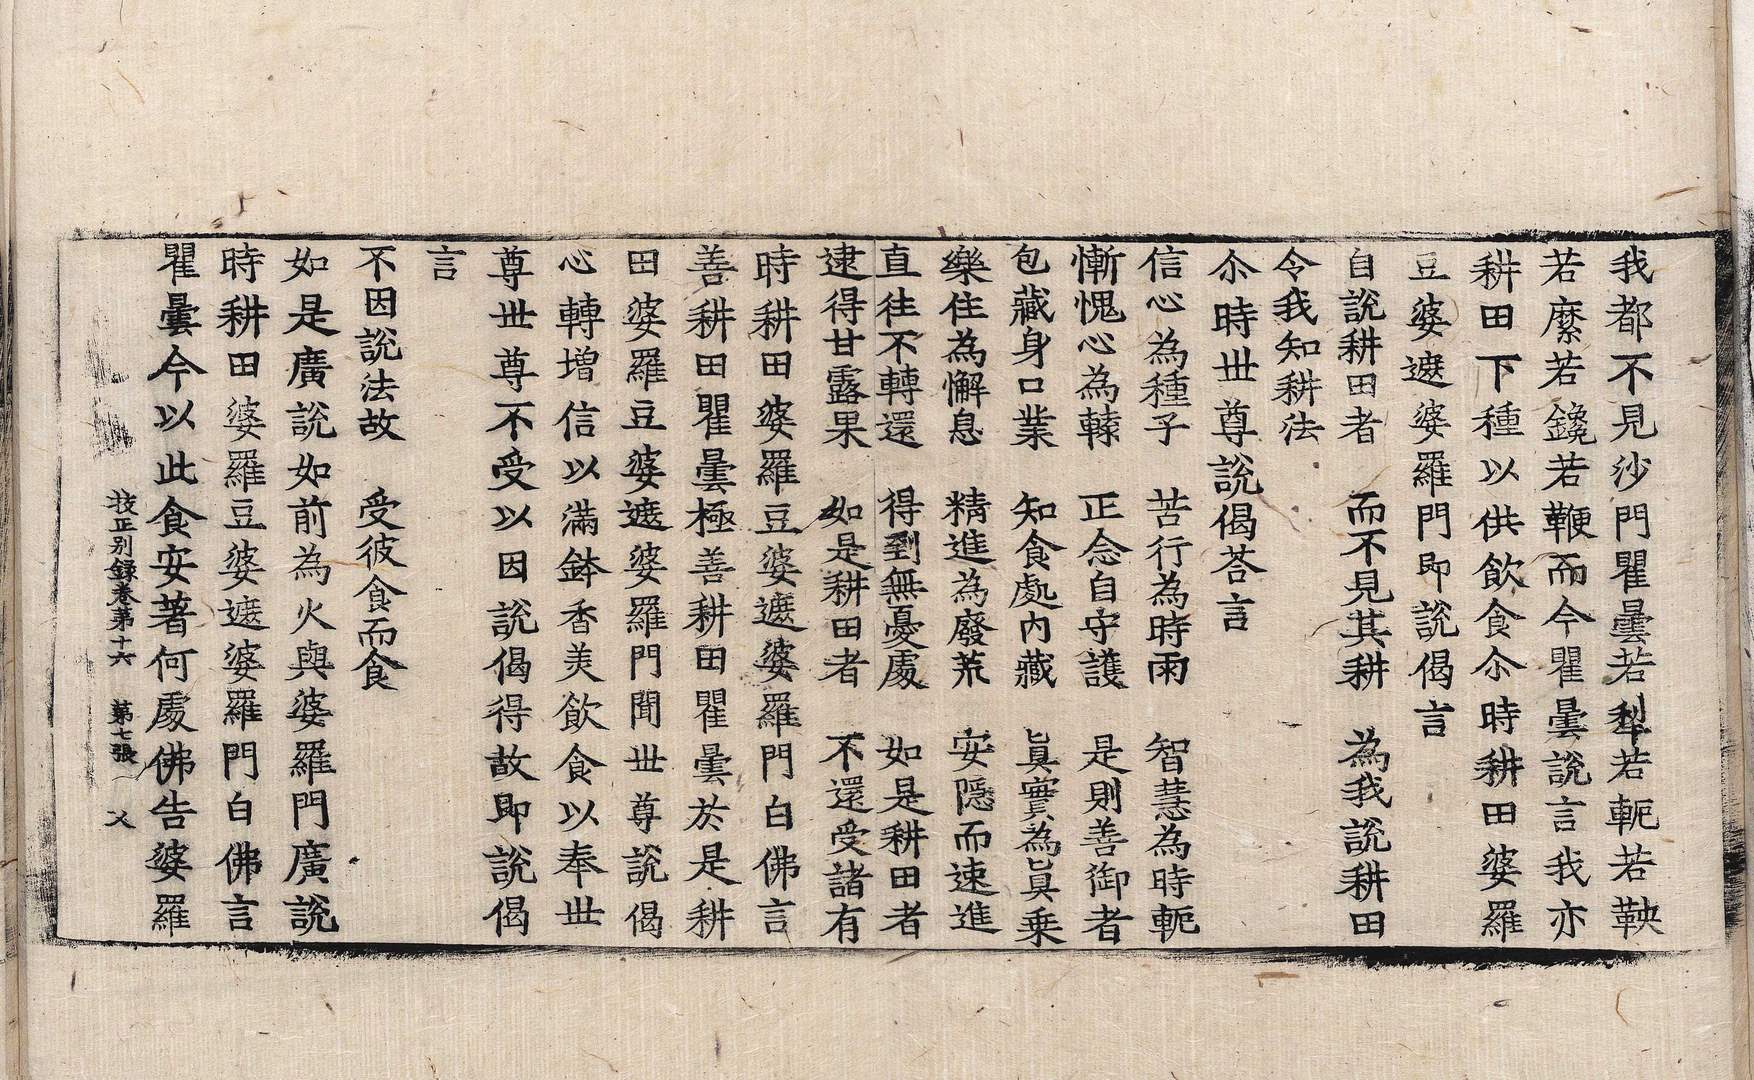 我都不見沙門瞿曇若犁若軛若鞅
若縻若鑱若鞭而今瞿曇說言我亦
耕田下種以供飮食尒時耕田婆羅
豆婆遮婆羅門即說偈言
自說耕田者　而不見其耕　為我說耕田
令我知耕法
尒時世尊說偈荅言
信心為種子　苦行為時雨　智慧為時軛
慚愧心為轅　正念自守護　是則善御者
包藏身口業　知食處內藏　眞實為眞乗
樂住為懈息　精進為廢荒　安隱而速進
直往不轉還　得到無憂處　如是耕田者
逮得甘露果　如是耕田者　不還受諸有
時耕田婆羅豆婆遮婆羅門白佛言
善耕田瞿曇極善耕田瞿曇於是耕
田婆羅豆婆遮婆羅門聞世尊說偈
心轉增信以滿鉢香美飮食以奉世
尊世尊不受以因說偈得故即說偈
言
不因說法故　受彼食而食
如是廣說如前為火與婆羅門廣說
時耕田婆羅豆婆遮婆羅門白佛言
瞿曇今以此食安著何處佛告婆羅
挍正別錄卷第十六　第七張　乂